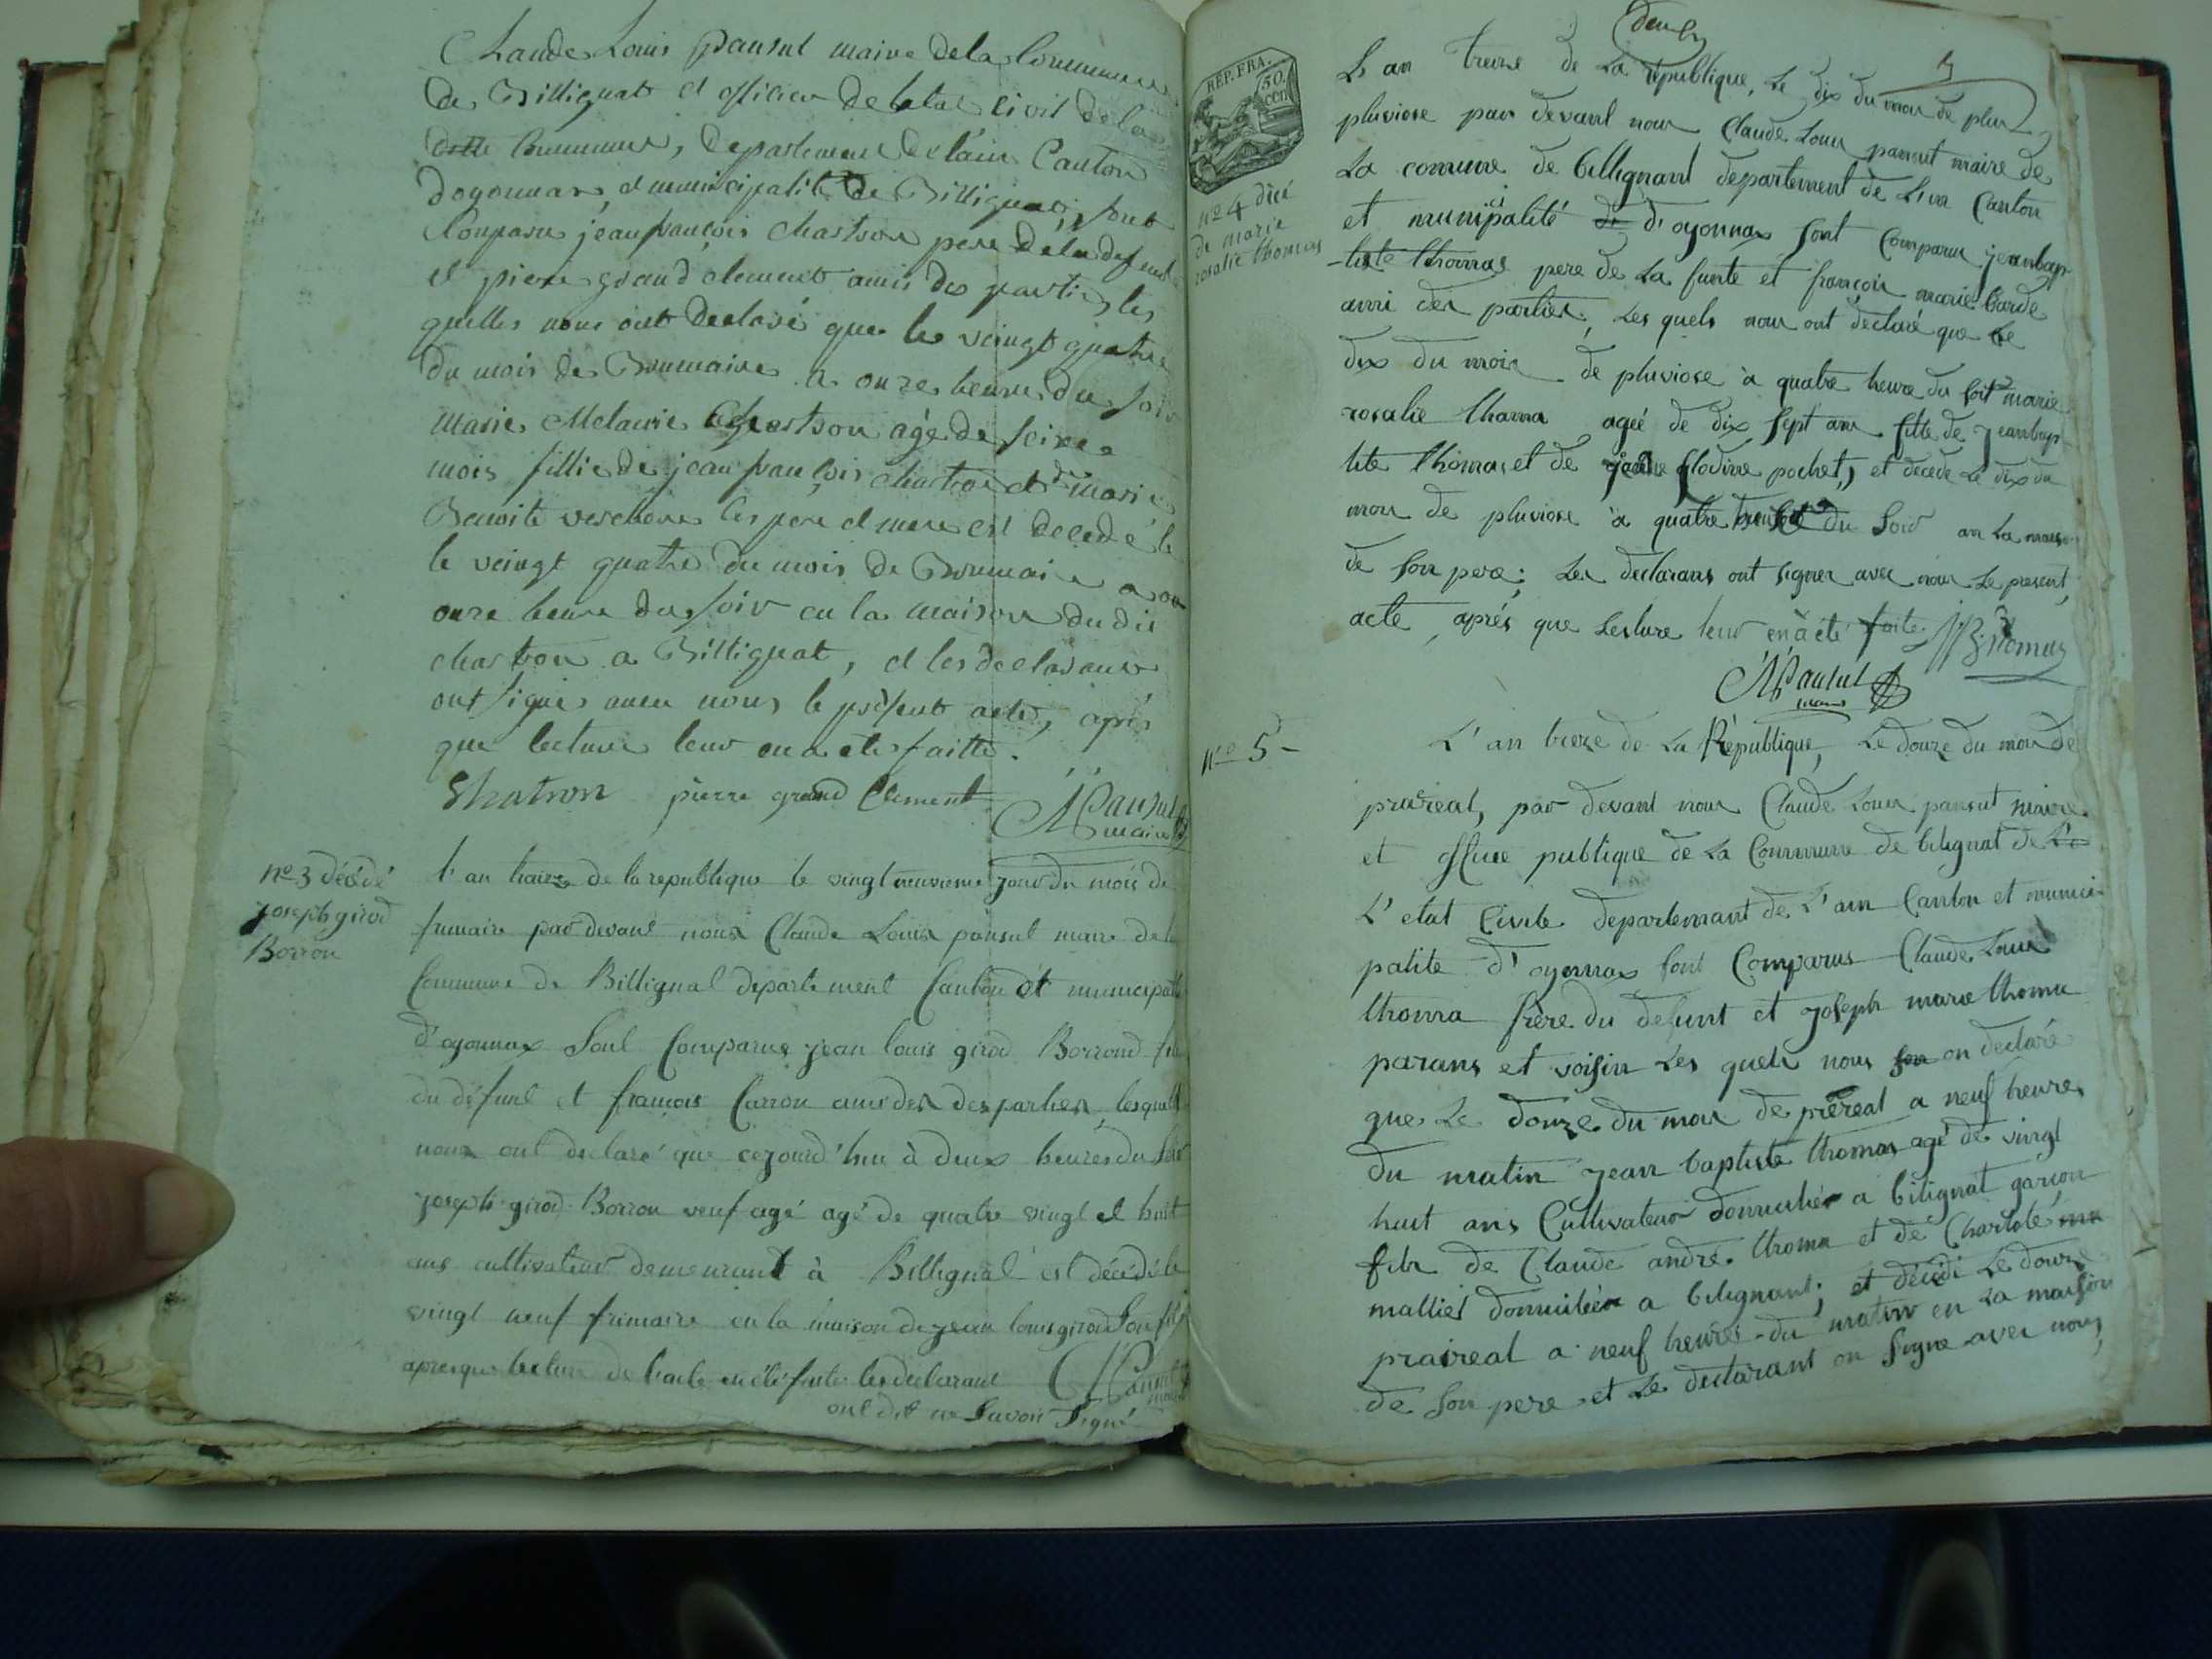 Claude Louis pansut maire de la Commune
de Billignat et officier de letat civil de la
ditte Commune, departement de lain Canton
doyonnax, et municipalité de Billignat, sont
Comparu jean françois chartron pere de la defunte
et pierre grand clement amis des parties les
quelles nous ont declaré que le veingt quatre
du mois de Brumaire a onze heure du soir
Marie Melanie Chartron agé de seize
mois fillie de jean françois chartron et de marie
Benoite les pere et mere est decedé le
le veingt quatre du mois de Brumaire a on
onze heure du soir en la maison du dit
chartron a Billignat, et les declarant
ont signés avec nous le présent acte, après
que lecture leur en a ete faitte.
Chatron pierre grand Clement CLPansut
maire
nº 3 décédé
joseph girod
Borron
l'an traize de la republique le vingt neuvieme jour du mois de
frimaire par devant nous Claude Louis pansut maire de la
Commune de Billignat departement Canton et municipalité
d'oyonnax Sont Comparus jean louis girod Borrond fils
du défunt et françois Carron des parties, lesquells
nous ont declaré que cejourd'hui à deux heures du soir
joseph girod Borron veuf agé agé de quatre vingt et huit
ans cultivateur demeurant à Billignat est décédé le
vingt neuf frimaire en la maison de jean louis girod son fils
apres que lecture de l'acte en été faite les declarant CLPansut
maire
ont dit ne savoir Signé
REP. FRA.
50.
cen
nº 4 dicé
de marie
rosalie thomas
L an treize de La republique, Le dix du mois de plu
pluviose par devant nous Claude Louis pansut maire de
La comune de billignant departement de L'in Canton
et municipalité di d'oyonnax sont Comparu jeanbap
tiste thomas pere de La funte et françois marie barde
ami des parties, Les quels nous ont declaré que Le
dix du mois de pluviose à quatre heure du soir marie
rosalie thoma ageé de dix sept ans fille de jeanbap
tite thomas et de Clodine pochet, et decede Le dix du
mois de pluviose à quatre du Soir an La maison
de son pere; Les declarans ont signer avec nous Le present
acte, aprés que Lecture leur en à été faite. JB thomas
CLPansut
maire
nº 5
L'an treze de La République, Le douze du mois de
praireal, par devant nous Claude Louis pansut maire
et officie publique de La Commune de bilignat de L'e
L'etat Civile departemant de L'ain Canton et munici
palite d'oyonnax sont Comparus Claude Louis
thoma frère du defunt et joseph marie thoma
parans et voisin Les quels nous son on declaré
que Le douze du mois de prëreal a neuf heures
du matin jean baptiste thomas agé de vingt
huit ans Cultivateur domicilier a bilignat garçon
fils de Claude andré thoma et de Charlote ma
malliet domicilier a bilignant; et décédé Le douze
praireal a neuf heures du matin en La maison
de son pere et Le declarant on signe avec nous